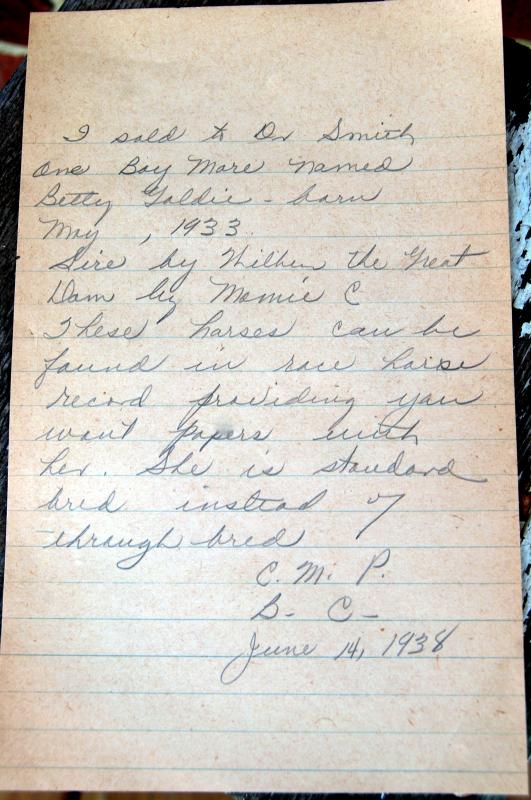 I sold to Dr Smith
One Bay Mare named
Betty Goldie - born
May , 1933
Sire by the Great
Dam by Mamie C
These horses can be
found in race horse
record providing you
want papers with
her. She is standard
bred instead of
through bred
C. M. P.
B- C-
June 14, 1938